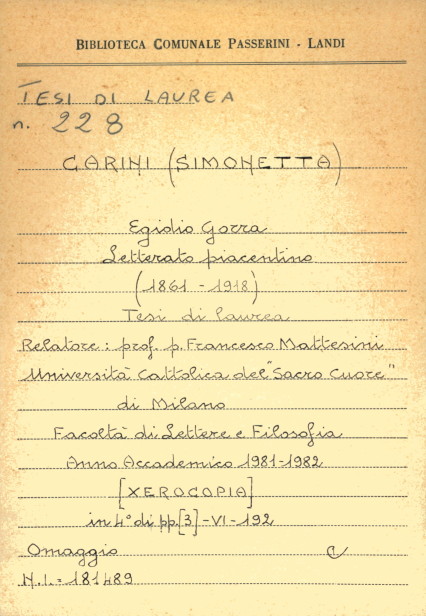 BIBLIOTECA COMUNALE PASSERINI - LANDI
TESI DI LAUREA
n. 228
CARINI (SIMONETTA)
Egidio Gorra
Letterato piacentino
(1861 - 1918)
Tesi di laurea
Relatore: prof. p. Francesco Mattesini
Università Cattolica del "Sacro Cuore"
di Milano
Facoltà di Lettere e Filosofia
Anno Accademico 1981-1982
[XEROCOPIA]
in 4° di pp. [3] - VI - 192
Omaggio C
N.I. = 181489